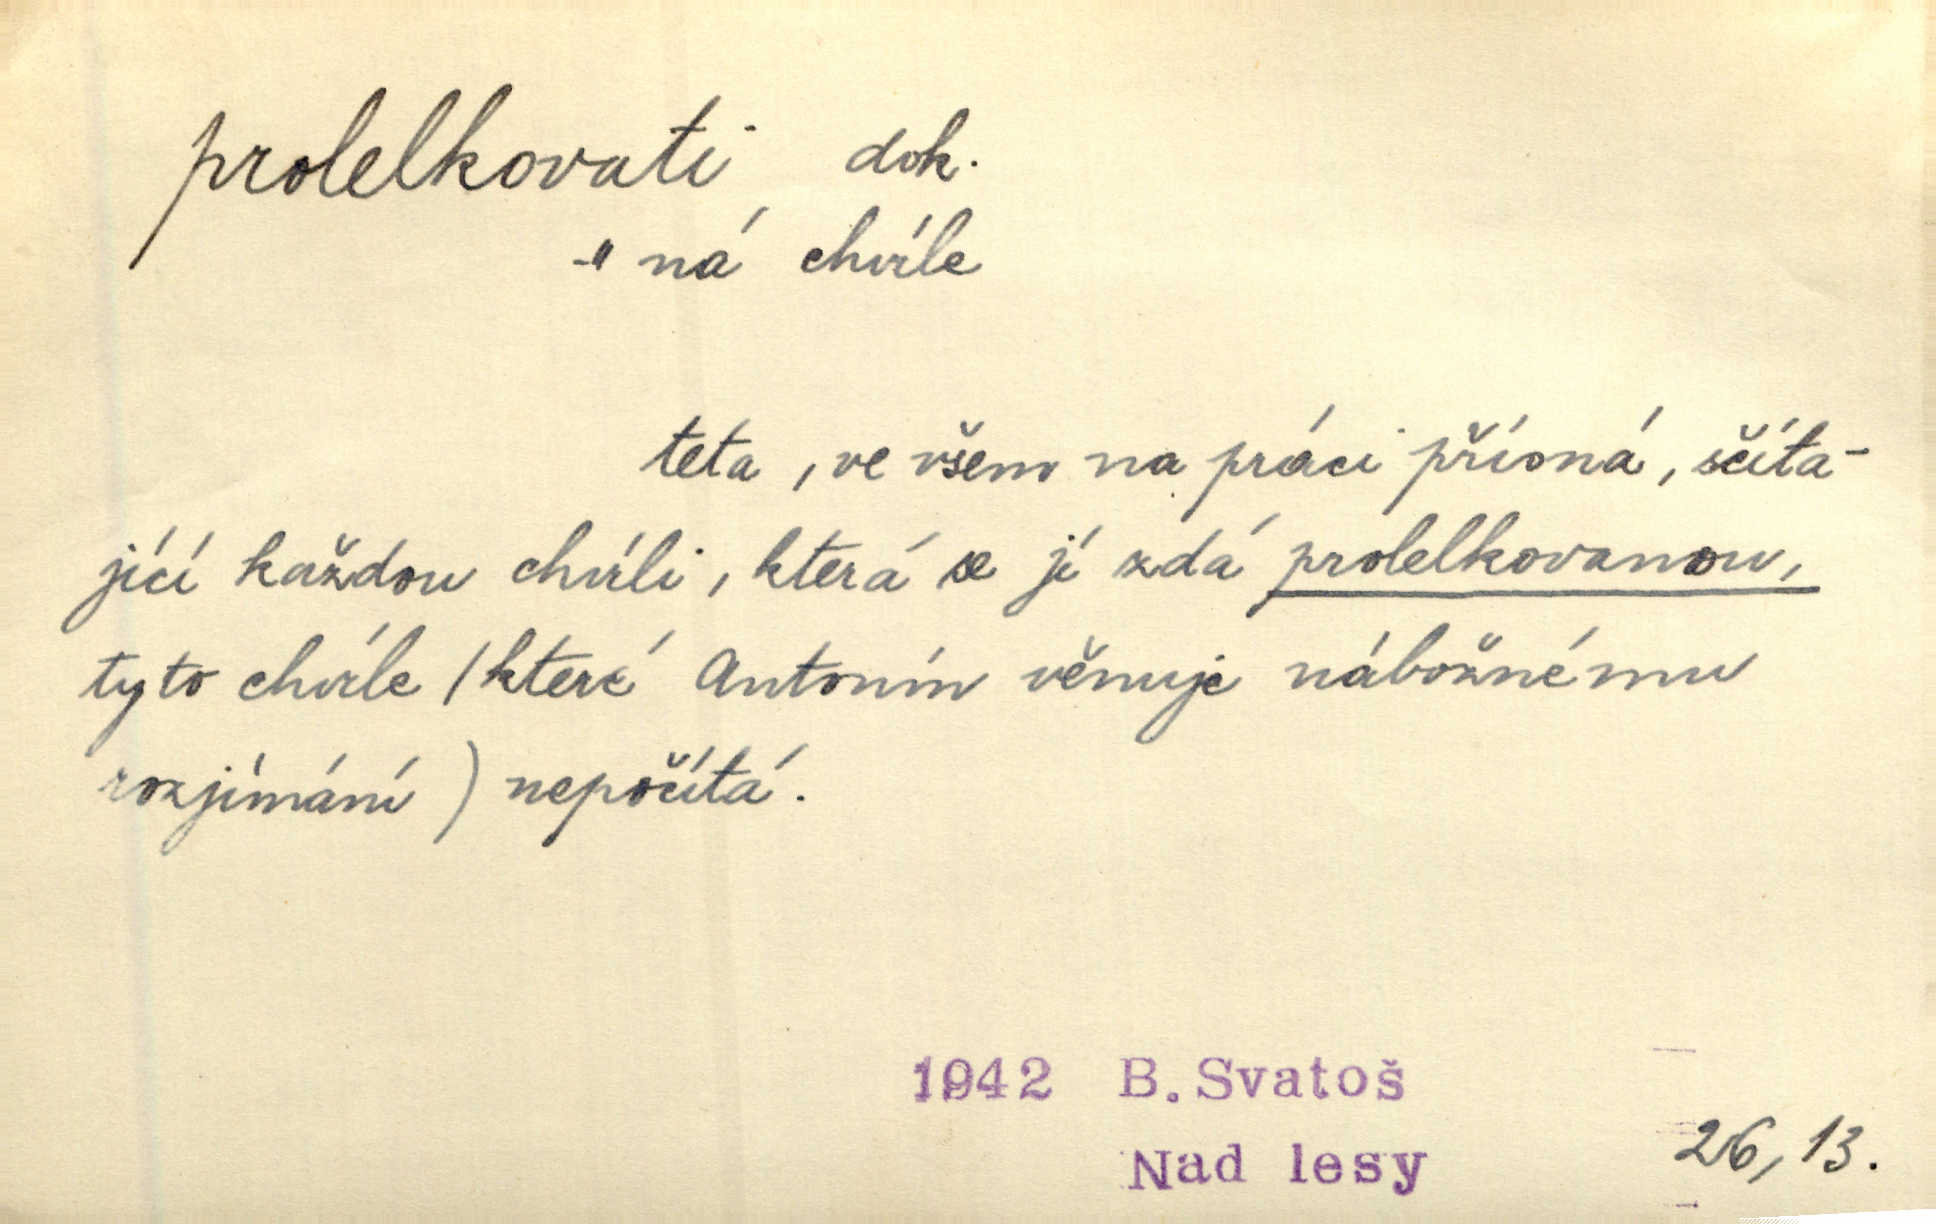 prolelkovati dok.
-" ná chvíle
teta, ve všem na práci přísná, sčíta-
jící každou chvíli, která se jí zdá prolelkovanou,
tyto chvíle /které Antonín věnuje nábožnému
rozjímání) nepočítá.
1942 B. Svatoš
Nad lesy
26, 13.